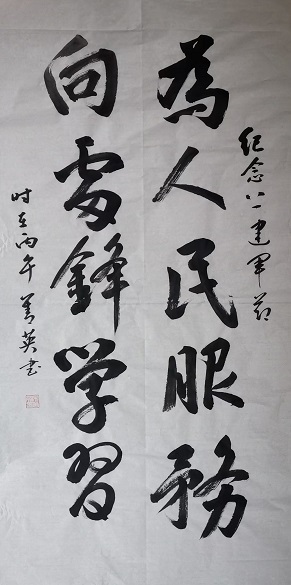 紀念八一建軍節
為人民服務
向雷鋒学習
时在丙午菁英书